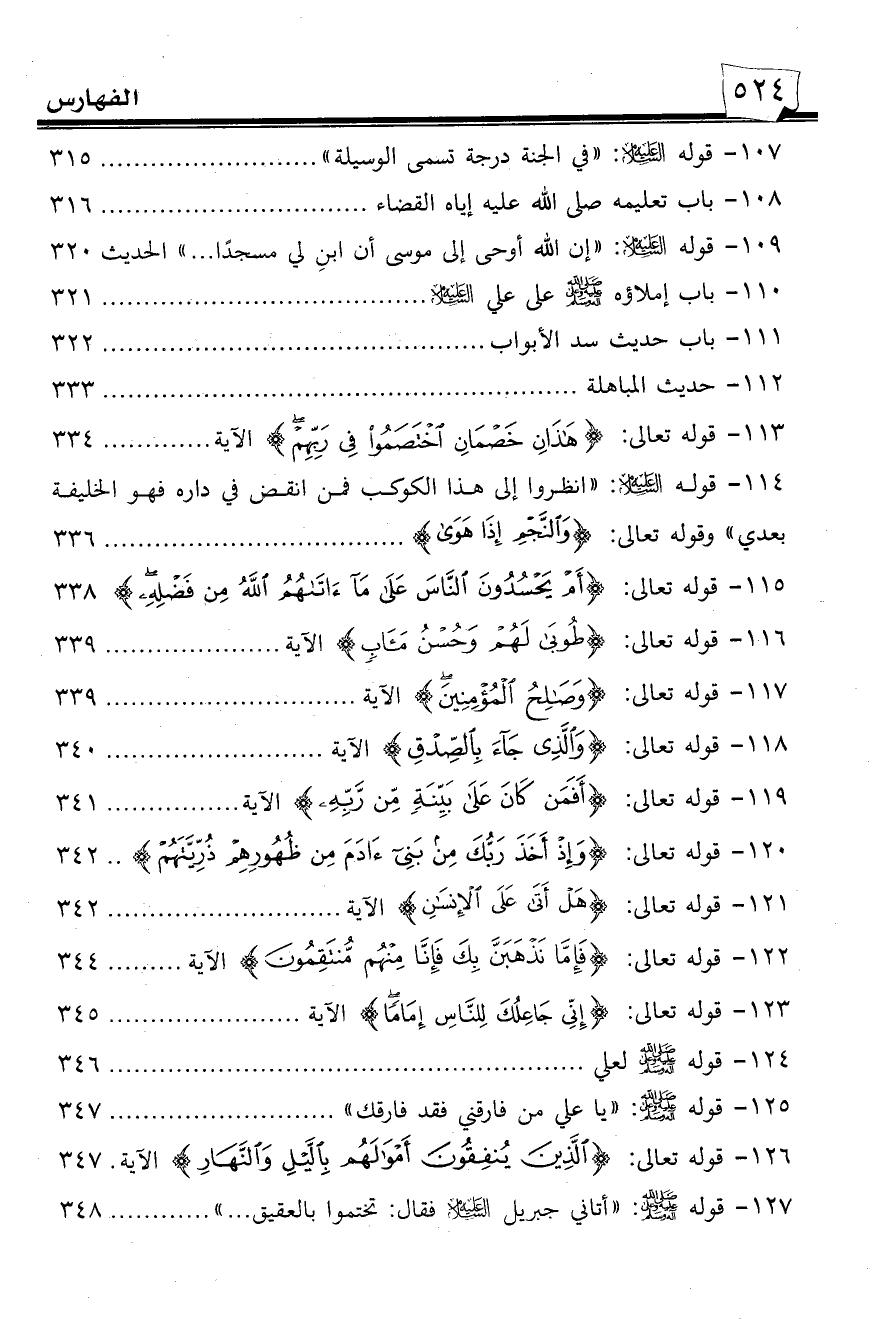 ٥٢٤
الفهارس
١٠٧- قوله عليه السلام: «في الجنة درجة تسمى الوسيلة» .......................... ٣١٥
١٠٨- باب تعليمه صلى الله عليه إياه القضاء ............................. ٣١٦
١٠٩- قوله عليه السلام: «إن الله أوحى إلى موسى أن ابنِ لي مسجدًا...» الحديث ٣٢٠
١١٠- باب إملاؤه ﷺ على علي عليه السلام................................... ٣٢١
١١١- باب حديث سد الأبواب.......................................... ٣٢٢
١١٢- حديث المباهلة .................................................... ٣٣٣
١١٣- قوله تعالى: ﴿هَٰذَانِ خَصۡمَانِ ٱخۡتَصَمُواْ فِي رَبِّهِمۡۖ﴾ الآية............. ٣٣٤
١١٤- قوله عليه السلام: «انظروا إلى هذا الكوكب فمن انقض في داره فهو الخليفة
بعدي» وقوله تعالى: ﴿وَٱلنَّجۡمِ إِذَا هَوَىٰ﴾ ................................. ٣٣٦
١١٥- قوله تعالى: ﴿أَمۡ يَحۡسُدُونَ ٱلنَّاسَ عَلَىٰ مَآ ءَاتَىٰهُمُ ٱللَّهُ مِن فَضۡلِهِۦۖ﴾ ٣٣٨
١١٦- قوله تعالى: ﴿طُوبَىٰ لَهُمۡ وَحُسۡنُ مَـَٔابٖ﴾ الآية ................... ٣٣٩
١١٧- قوله تعالى: ﴿وَصَٰلِحُ ٱلۡمُؤۡمِنِينَۖ﴾ الآية ........................... ٣٣٩
١١٨- قوله تعالى: ﴿وَٱلَّذِي جَآءَ بِٱلصِّدۡقِ﴾ الآية ........................ ٣٤٠
١١٩- قوله تعالى: ﴿أَفَمَن كَانَ عَلَىٰ بَيِّنَةٖ مِّن رَّبِّهِۦ﴾ الآية............... ٣٤١
١٢٠- قوله تعالى: ﴿وَإِذۡ أَخَذَ رَبُّكَ مِنۢ بَنِيٓ ءَادَمَ مِن ظُهُورِهِمۡ ذُرِّيَّتَهُمۡ﴾ .. ٣٤٢
١٢١- قوله تعالى: ﴿هَلۡ أَتَىٰ عَلَى ٱلۡإِنسَٰنِ﴾ الآية ......................... ٣٤٢
١٢٢- قوله تعالى: ﴿فَإِمَّا نَذۡهَبَنَّ بِكَ فَإِنَّا مِنۡهُم مُّنتَقِمُونَ﴾ الآية ......... ٣٤٤
١٢٣- قوله تعالى: ﴿إِنِّي جَاعِلُكَ لِلنَّاسِ إِمَامٗاۖ﴾ الآية ..................... ٣٤٥
١٢٤- قوله ﷺ لعلي .................................................... ٣٤٦
١٢٥- قوله ﷺ: «يا علي من فارقني فقد فارقك» ......................... ٣٤٧
١٢٦- قوله تعالى: ﴿ٱلَّذِينَ يُنفِقُونَ أَمۡوَٰلَهُم بِٱلَّيۡلِ وَٱلنَّهَارِ﴾ الآية. ٣٤٧
١٢٧- قوله ﷺ: «أتاني جبريل عليه السلام فقال: تختموا بالعقيق...»........... ٣٤٨